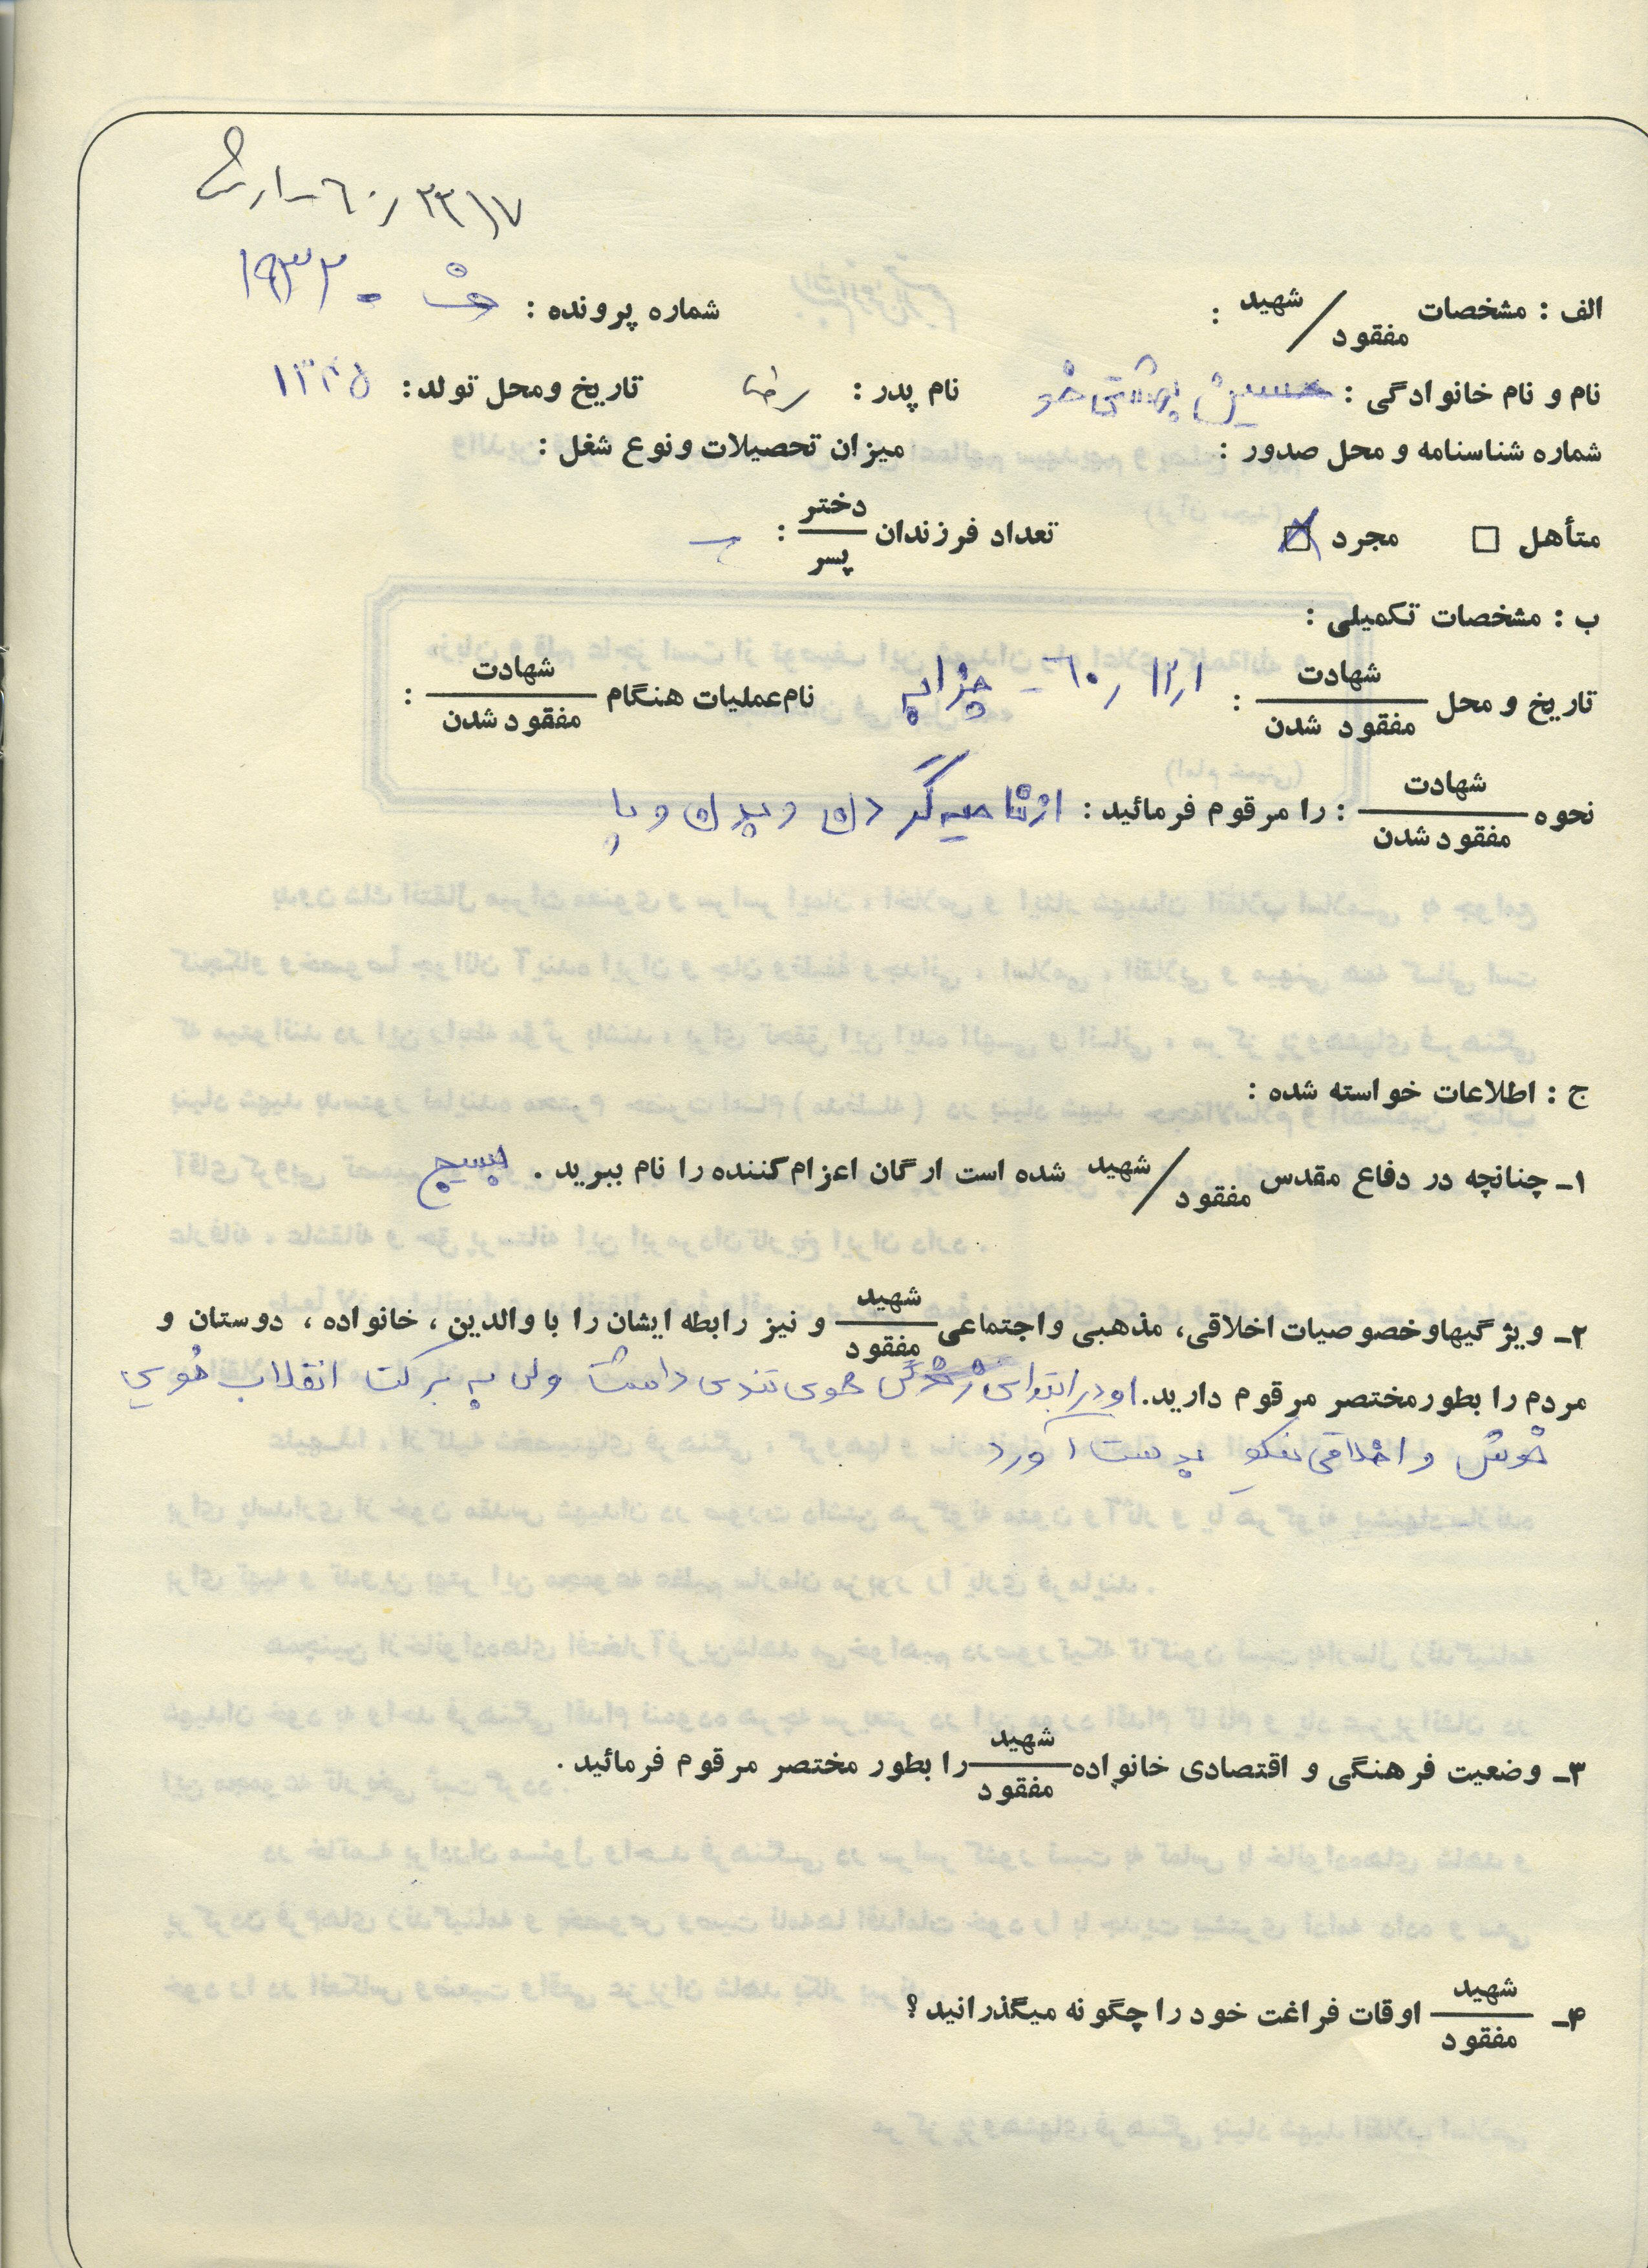 الف : مشخصات شهید / مفقود : شماره پرونده : ۱۹۳۲۰
نام و نام خانوادگی : حسین بهشتی خو نام پدر : رضا تاریخ ومحل تولد : ۱۳۴۵
شماره شناسنامه و محل صدور : میزان تحصیلات ونوع شغل :
متأهل □ مجرد ☒ تعداد فرزندان دختر / پسر : —
ب : مشخصات تکمیلی :
تاریخ و محل شهادت / مفقود شدن : ۶۰/۱۲/۱ - چزابه نام عملیات هنگام شهادت / مفقود شدن :
نحوه شهادت / مفقود شدن : را مرقوم فرمائید : از ناحیه گردن و بدن و پا
ج : اطلاعات خواسته شده :
۱ـ چنانچه در دفاع مقدس شهید / مفقود شده است ارگان اعزام کننده را نام ببرید . بسیج
۲ـ ویژگیهاوخصوصیات اخلاقی، مذهبی واجتماعی شهید / مفقود و نیز رابطه ایشان را با والدین ، خانواده ، دوستان و
مردم را بطورمختصر مرقوم دارید. او در ابتدای خوی تندی داشت ولی به برکت انقلاب خوی
خوش و اخلاقی نیکو بدست آورد
۳ـ وضعیت فرهنگی و اقتصادی خانواده شهید / مفقود را بطور مختصر مرقوم فرمائید .
۴ـ شهید / مفقود اوقات فراغت خود را چگونه میگذرانید ؟